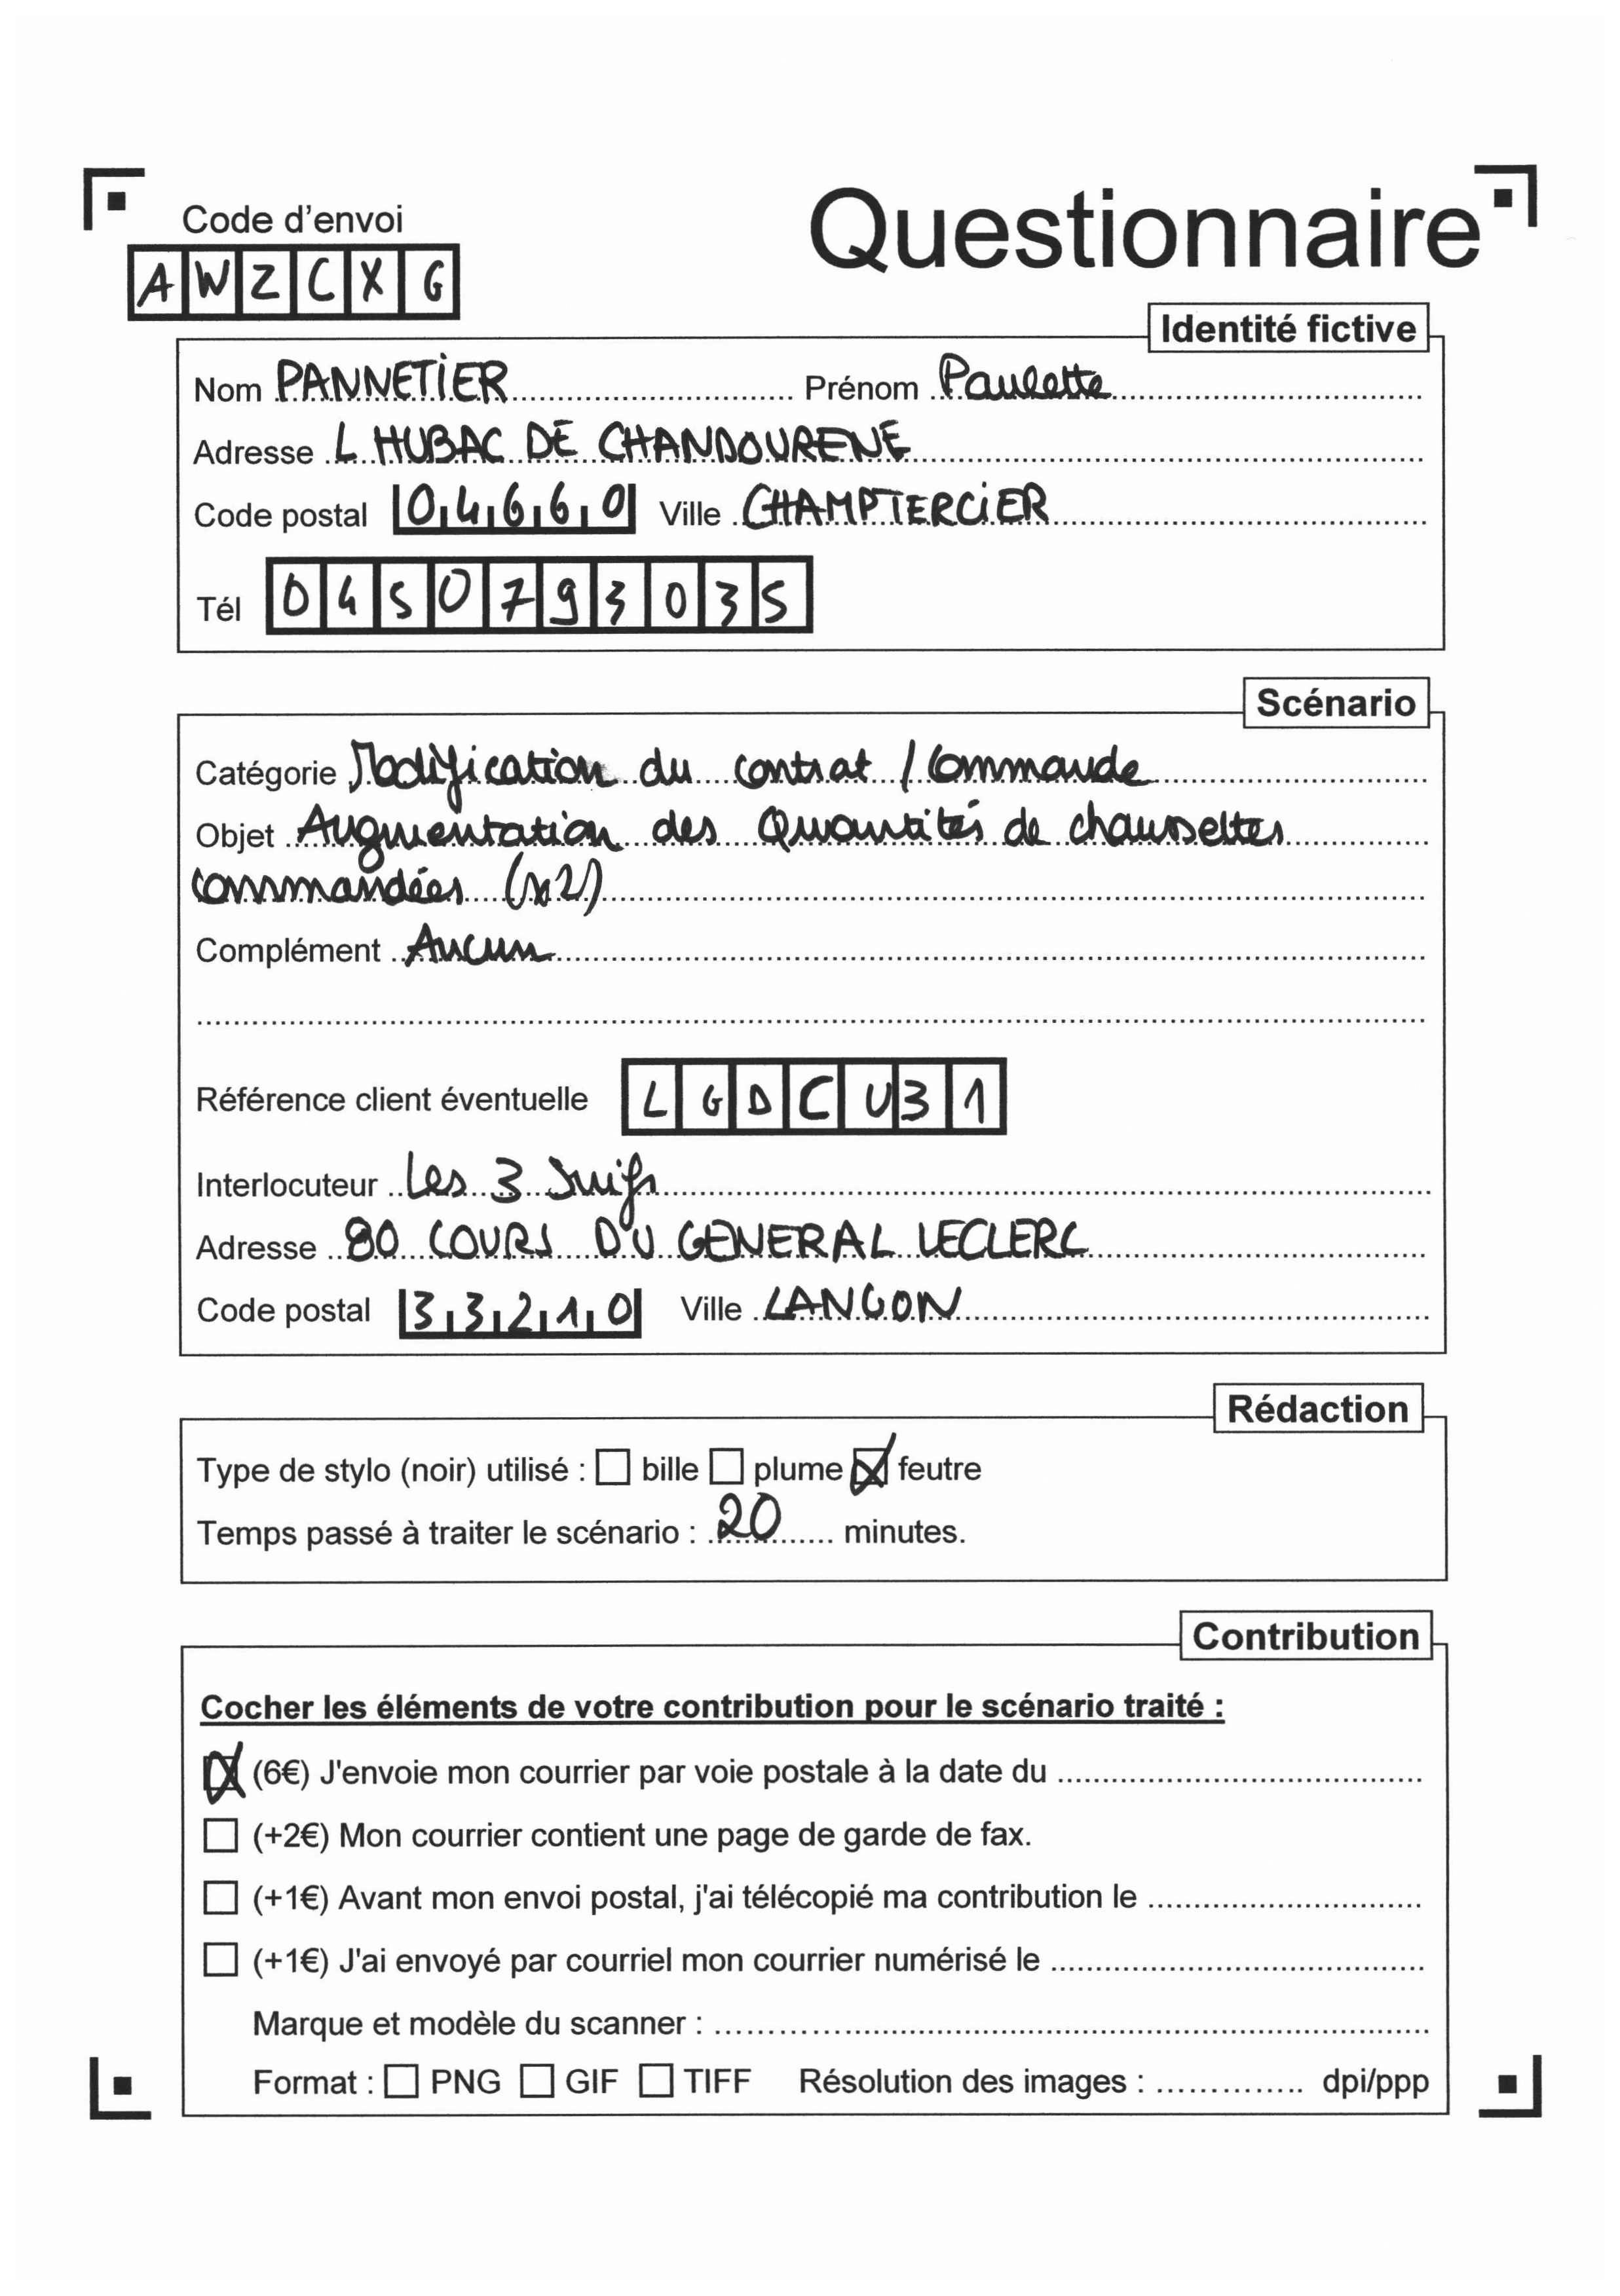 Code d'envoi
Questionnaire
A W Z C X G
Identité fictive
Nom PANNETIER Prénom Paulette
Adresse L HUBAC DE CHANDOURENE
Code postal 04660 Ville CHAMPTERCIER
Tél 0450793035
Scénario
Catégorie Modification du contrat / Commande
Objet Augmentation des Quantités de chaussettes
commandées (x2)
Complément Aucun
Référence client éventuelle L G D C U 3 1
Interlocuteur Les 3 Suifs
Adresse 80 COURS DU GENERAL LECLERC
Code postal 33210 Ville LANGON
Rédaction
Type de stylo (noir) utilisé : ☐ bille ☐ plume ☒ feutre
Temps passé à traiter le scénario : 20 minutes.
Contribution
Cocher les éléments de votre contribution pour le scénario traité :
☒ (6€) J'envoie mon courrier par voie postale à la date du
☐ (+2€) Mon courrier contient une page de garde de fax.
☐ (+1€) Avant mon envoi postal, j'ai télécopié ma contribution le
☐ (+1€) J'ai envoyé par courriel mon courrier numérisé le
Marque et modèle du scanner :
Format : ☐ PNG ☐ GIF ☐ TIFF Résolution des images : dpi/ppp